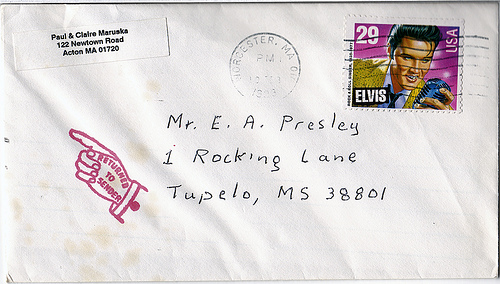 Paul & Claire Maruska
122 Newtown Road
Acton MA 01720
WORCESTER, MA 01
PM
1993
29
USA
ELVIS
Mr. E. A. Presley
1 Rocking Lane
Tupelo, MS 38801
RETURNED
TO
SENDER